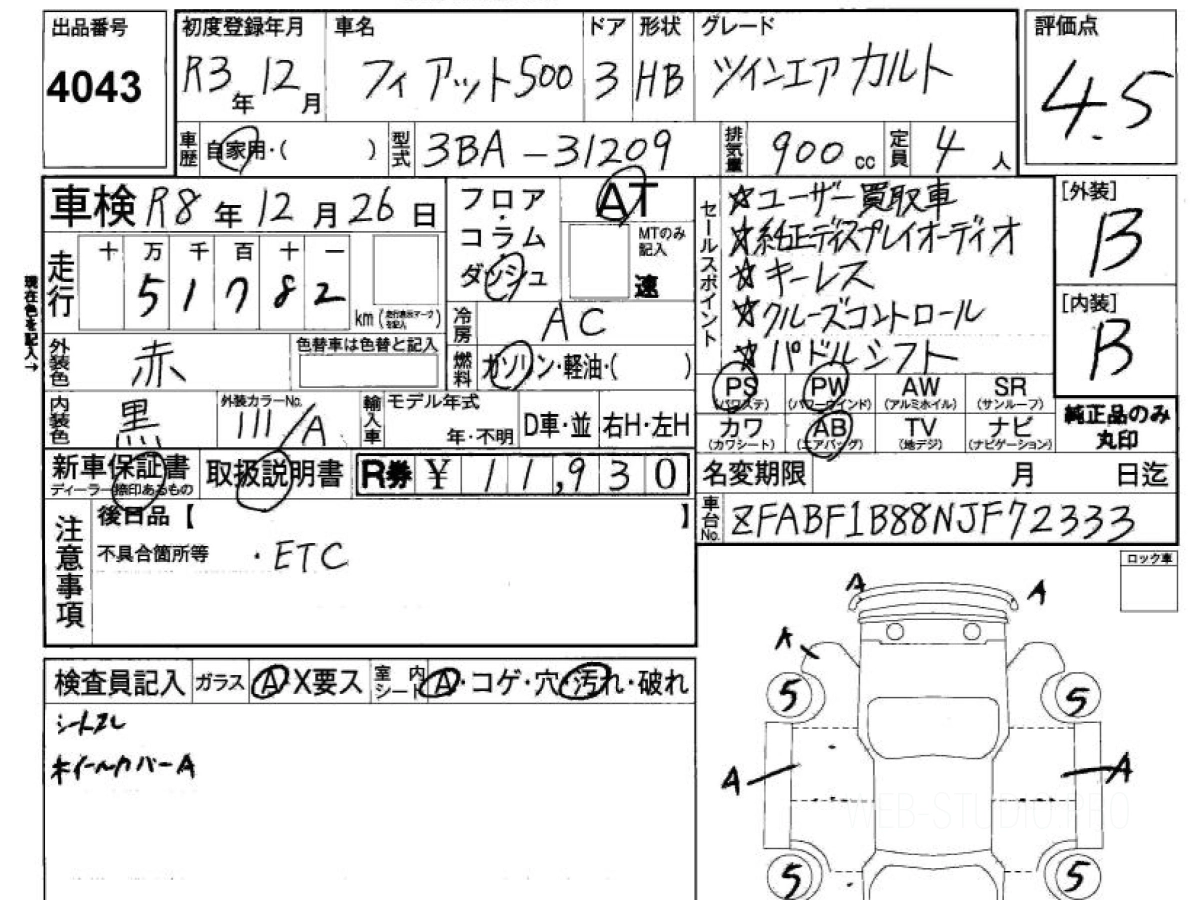 出品番号
4043
初度登録年月 車名 ドア 形状 グレード
R3年12月 フィアット500 3 HB ツインエアカルト
評価点
4.5
車歴 自家用・( ) 型式 3BA-31209 排気量 900cc 定員 4人
車検 R8年12月26日
フロア・コラム・ダッシュ
AT
MTのみ記入
速
セールスポイント
☆ユーザー買取車
☆純正ディスプレイオーディオ
☆キーレス
☆クルーズコントロール
☆パドルシフト
[外装]
B
[内装]
B
走行 十 万 千 百 十 一
51782
km (走行表示マークを記入)
現在色を記入→
冷房 AC
外装色 赤
色替車は色替と記入
燃料 ガソリン・軽油・( )
PS (パワステ) PW (パワーウインド) AW (アルミホイル) SR (サンルーフ)
カワ (カワシート) AB (エアバッグ) TV (地デジ) ナビ (ナビゲーション)
純正品のみ丸印
内装色 黒
外装カラーNo. 111/A
輸入車 モデル年式 年・不明 D車・並 右H・左H
新車保証書
ディーラー捺印あるもの
取扱説明書
R券 ¥11,930
名変期限 月 日迄
車台No. ZFABF1B88NJF72333
注意事項
後日品【 】
不具合箇所等 ・ETC
ロック車
検査員記入 ガラス A・X要ス 室内シート A・コゲ・穴・汚れ・破れ
シートスレ
ホイールカバーA
A
A
A
5
5
A
A
5
5
WEB-STUDIO.PRO